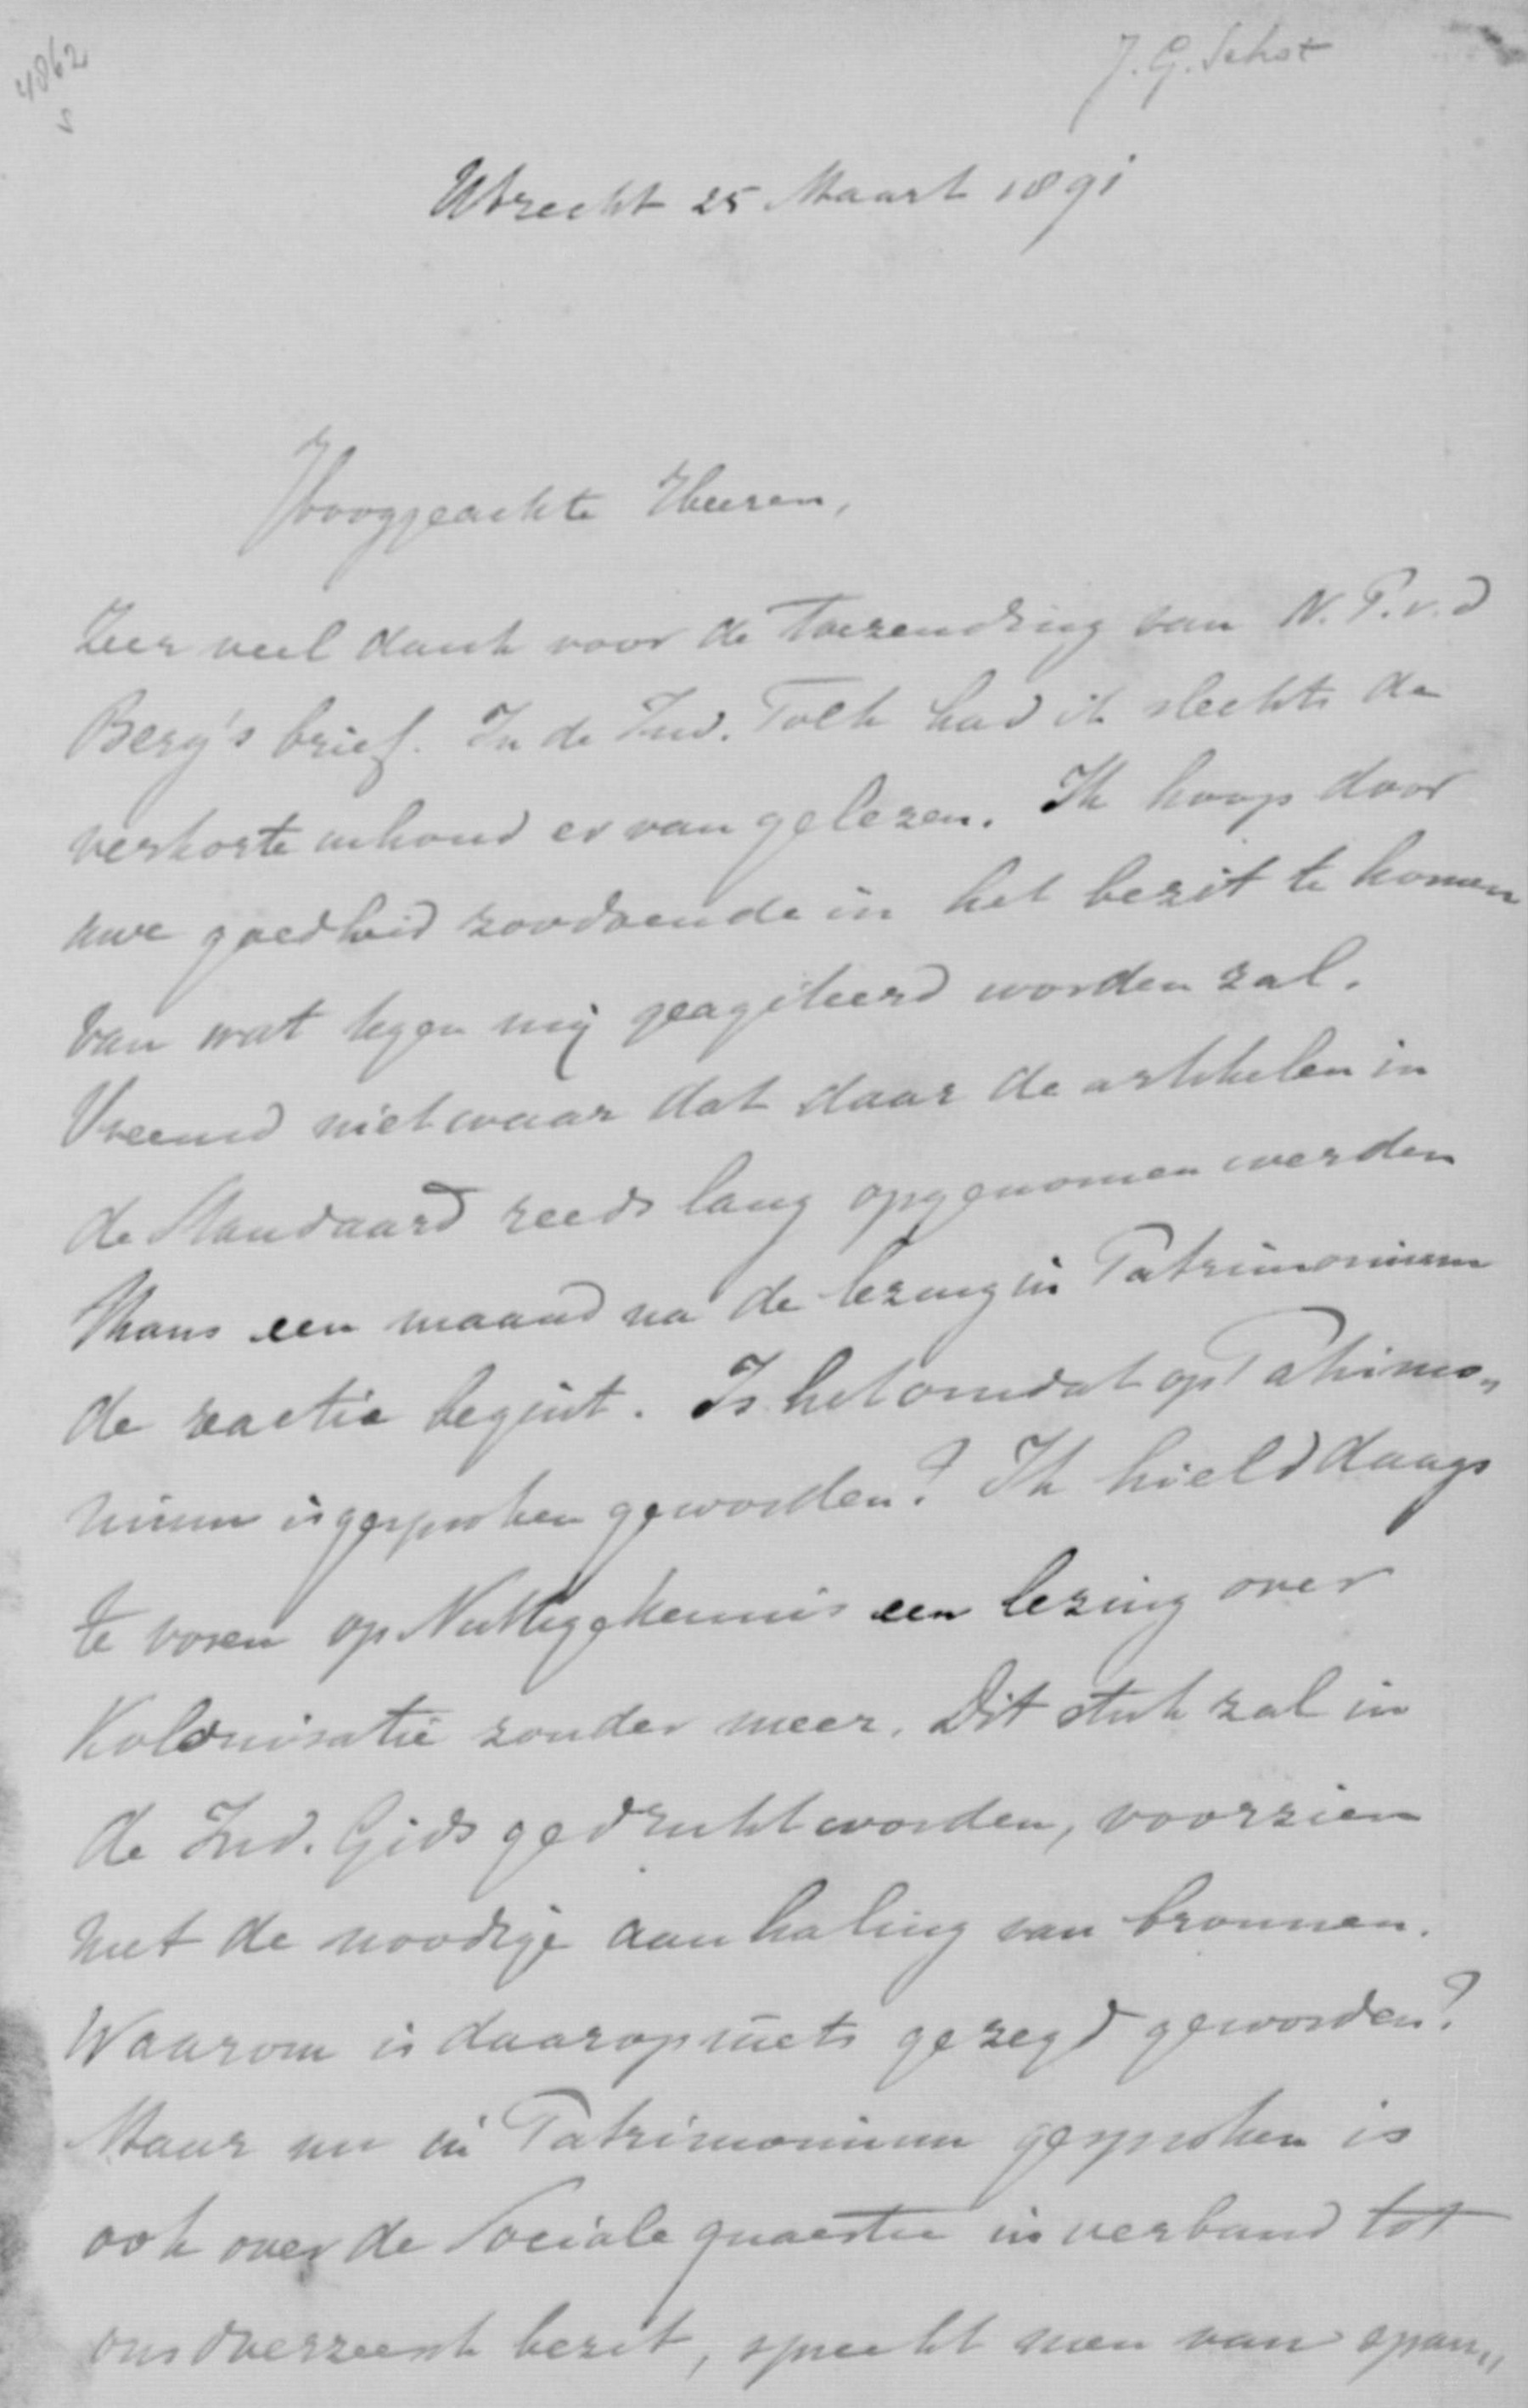 4862
J. G. Schot
Utrecht 25 Maart 1891
Hooggeachte Heeren,
Zeer veel dank voor de Toezending van N. P. v. d
Berg's brief. In de Ind. Tolk had ik slechts de
verkorte inhoud er van gelezen. Ik hoop door
uwe goedheid zoodoende in het bezit te komen
van wat tegen mij geageteerd worden zal.
Vreemd niet waar dat daar de artikelen in
de Standaard reeds lang opgenomen werden
Thans een maand na de lezing in Patrimonium
de reactie begint. Is het omdat op Patrimo„
nium is gesproken geworden? Ik hield daags
te voren op Nuttige Kennis een lezing over
Kolonisatie zonder meer. Dit stuk zal in
de Ind. Gids gedrukt worden, voorzien
met de noodige aanhaling van bronnen.
Waarom is daarop niets gezegd geworden?
Maar nu in Patrimonium gesproken is
ook over de Sociale quaestie in verband tot
ons overzeesch bezit, spreekt men van span„